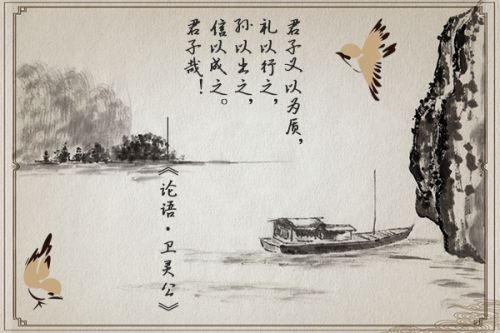 君子义以为质，
礼以行之，
孙以出之，
信以成之。
君子哉！
——《论语·卫灵公》